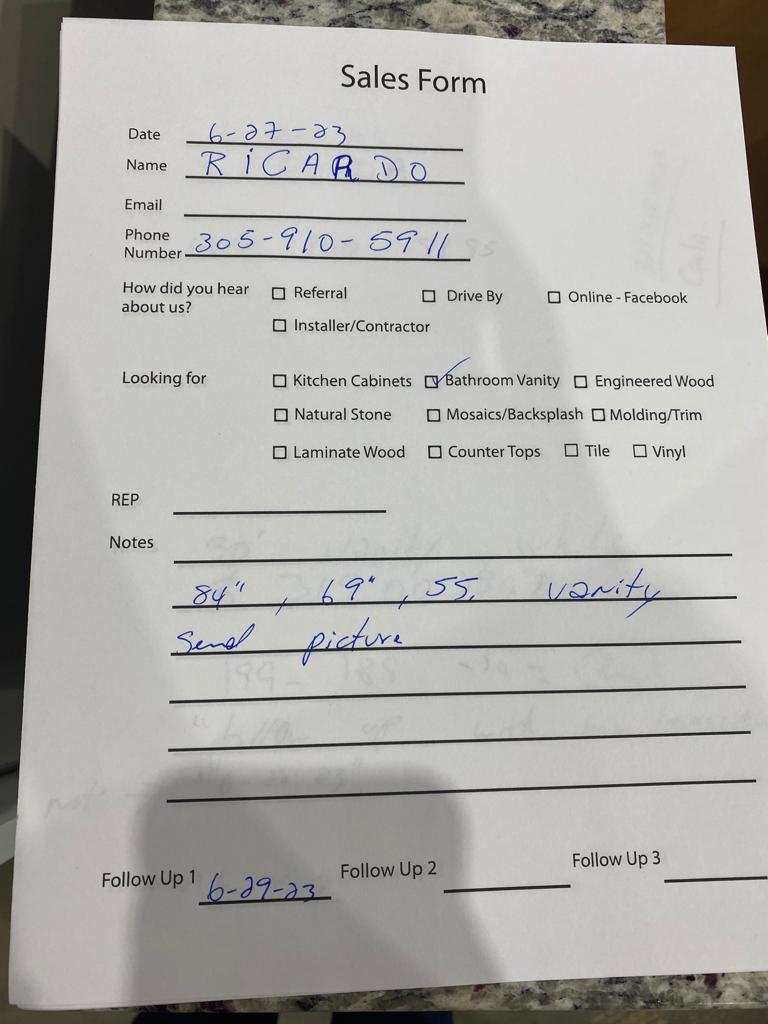 Sales Form
Date 6-27-23
Name RiCARDO
Email
Phone Number 305-910-5911
How did you hear about us? Referral Drive By Online - Facebook
Installer/Contractor
Looking for Kitchen Cabinets Bathroom Vanity Engineered Wood
Natural Stone Mosaics/Backsplash Molding/Trim
Laminate Wood Counter Tops Tile Vinyl
REP
Notes
84", 69", 55. vanity
Send picture
Follow Up 1 6-29-23 Follow Up 2 Follow Up 3